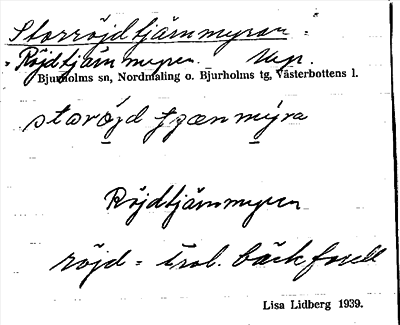 Storröjdtjärnmyran =
= Röjdtjärnmyren Uppr.
Bjurholms sn, Nordmaling o. Bjurholms tg, Västerbottens l.
storöjd tjæn mýra
Röjdtjärnmyren
röjd = trol. bäckforell
Lisa Lidberg 1939.